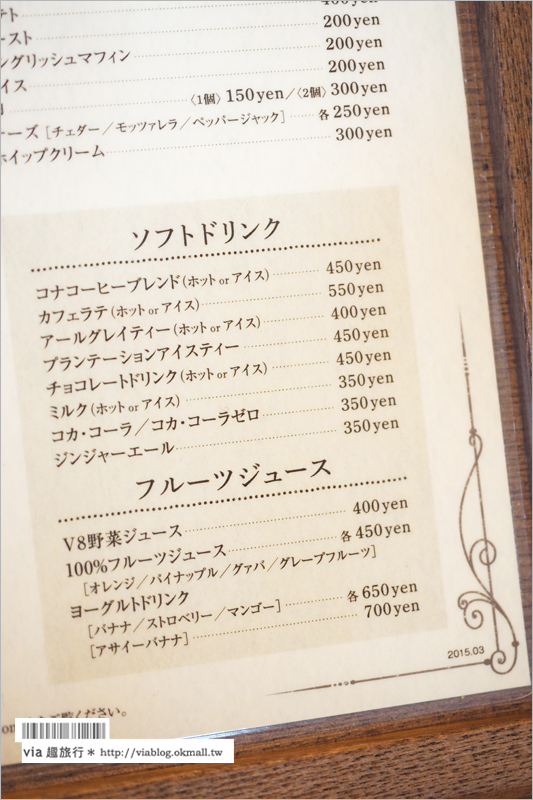 400yen
テト 200yen
ースト 200yen
ングリッシュマフィン 200yen
イス 〈1個〉150yen／〈2個〉300yen
ーズ［チェダー／モッツァレラ／ペッパージャック］ 各250yen
ホイップクリーム 300yen
ソフトドリンク
コナコーヒーブレンド(ホット or アイス) 450yen
カフェラテ(ホット or アイス) 550yen
アールグレイティー(ホット or アイス) 400yen
プランテーションアイスティー 450yen
チョコレートドリンク(ホット or アイス) 450yen
ミルク(ホット or アイス) 350yen
コカ・コーラ／コカ・コーラゼロ 350yen
ジンジャーエール 350yen
フルーツジュース
V8野菜ジュース 400yen
100%フルーツジュース 各450yen
［オレンジ／パイナップル／グァバ／グレープフルーツ］
ヨーグルトドリンク
［バナナ／ストロベリー／マンゴー］ 各650yen
［アサイーバナナ］ 700yen
2015.03
ください。
via 趣旅行＊ http://viablog.okmall.tw